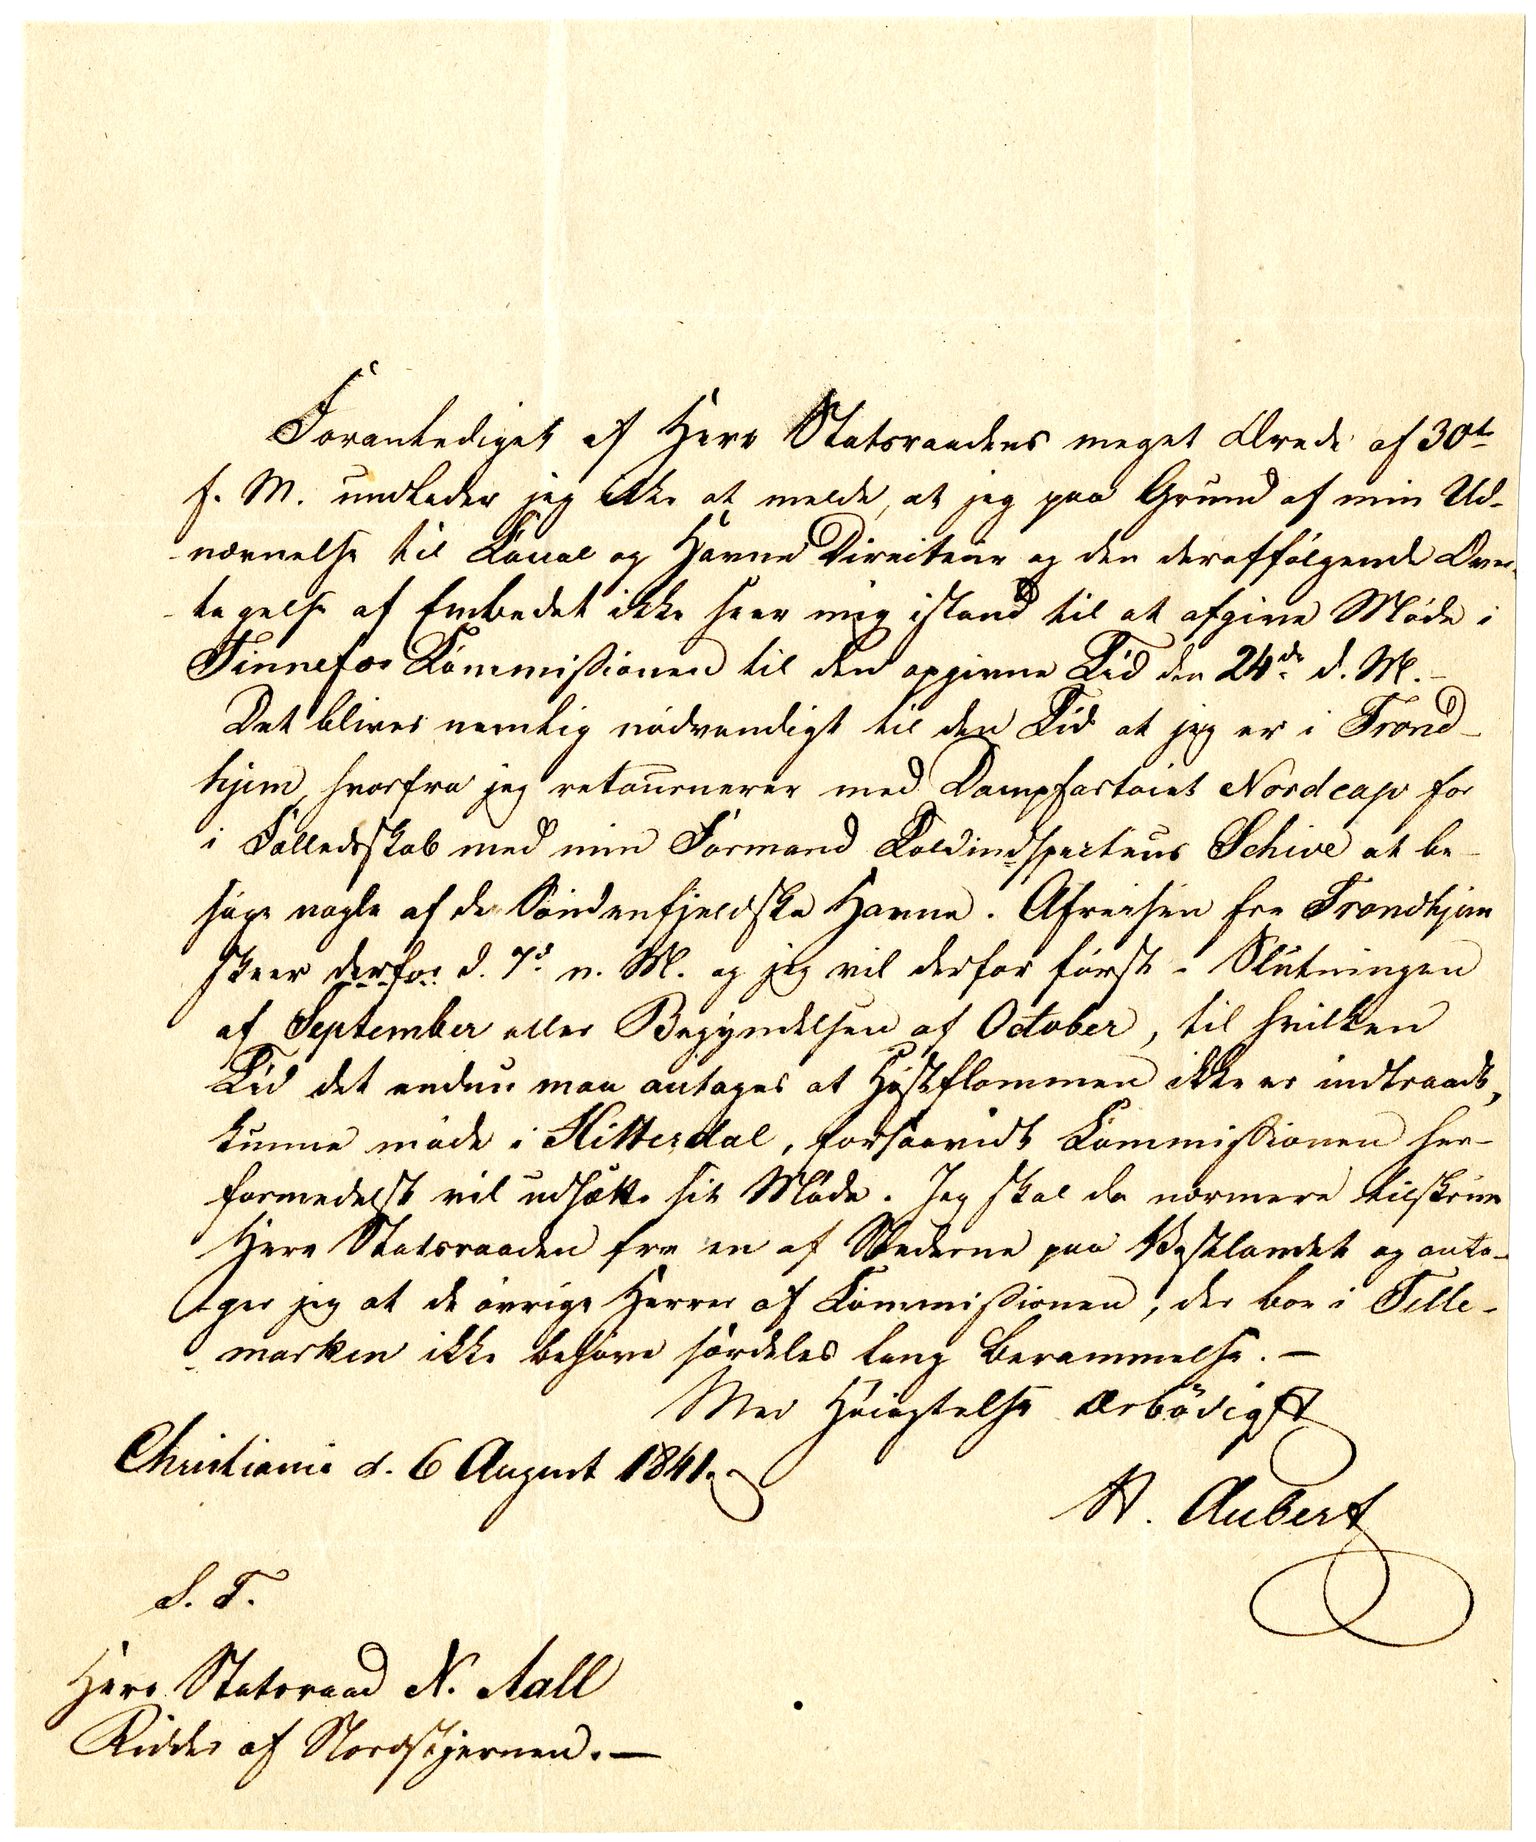 Foranlediget af Herr Statsraadens meget Ærede af 30te
f. M. undlader jeg ikke at melde, at jeg paa Grund af min Ud-
nævnelse til Canal og Havne Directeur og den deraffølgende Over-
tagelse af Embedet ikke seer mig istand til at afgive Møde i
Tinnefos Kommissionen til den opgivne Tid den 24de d. M. –
Det bliver nemlig nødvendigt til den Tid at jeg er i Trond-
hjem, hvorfra jeg retournerer med Dampfartøiet Nordcap for
i Fælledsskab med min Formand Toldinspecteur Schive at be-
søge nogle af de Søndenfjeldske Havne. Afreisen fra Trondhjem
skeer derfor d. 7d n. M. og jeg vil derfor først i Slutningen
af September eller Begyndelsen af October, til hvilken
Tid det endnu maa antages at Høstflommen ikke er indtraadt,
kunne møde i Hitterdal, forsaavidt Kommissionen her-
formedelst vil udsætte sit Møde. Jeg skal da nærmere tilskrive
Herr Statsraaden fra en af Stæderne paa Vestlandet og anta-
ger jeg at de øvrige Herrer af Kommissionen, der boe i Telle-
marken ikke behøve særdeles lang Berammelse. –
Med Høiagtelse ærbødigst
Christiania d. 6 August 1841.
H. Aubert
S. T.
Herr Statsraad N. Aall
Ridder af Nordstjernen. –